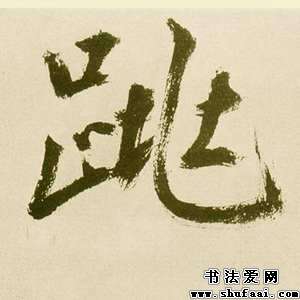 跳
书法爱网
www.shufaai.com